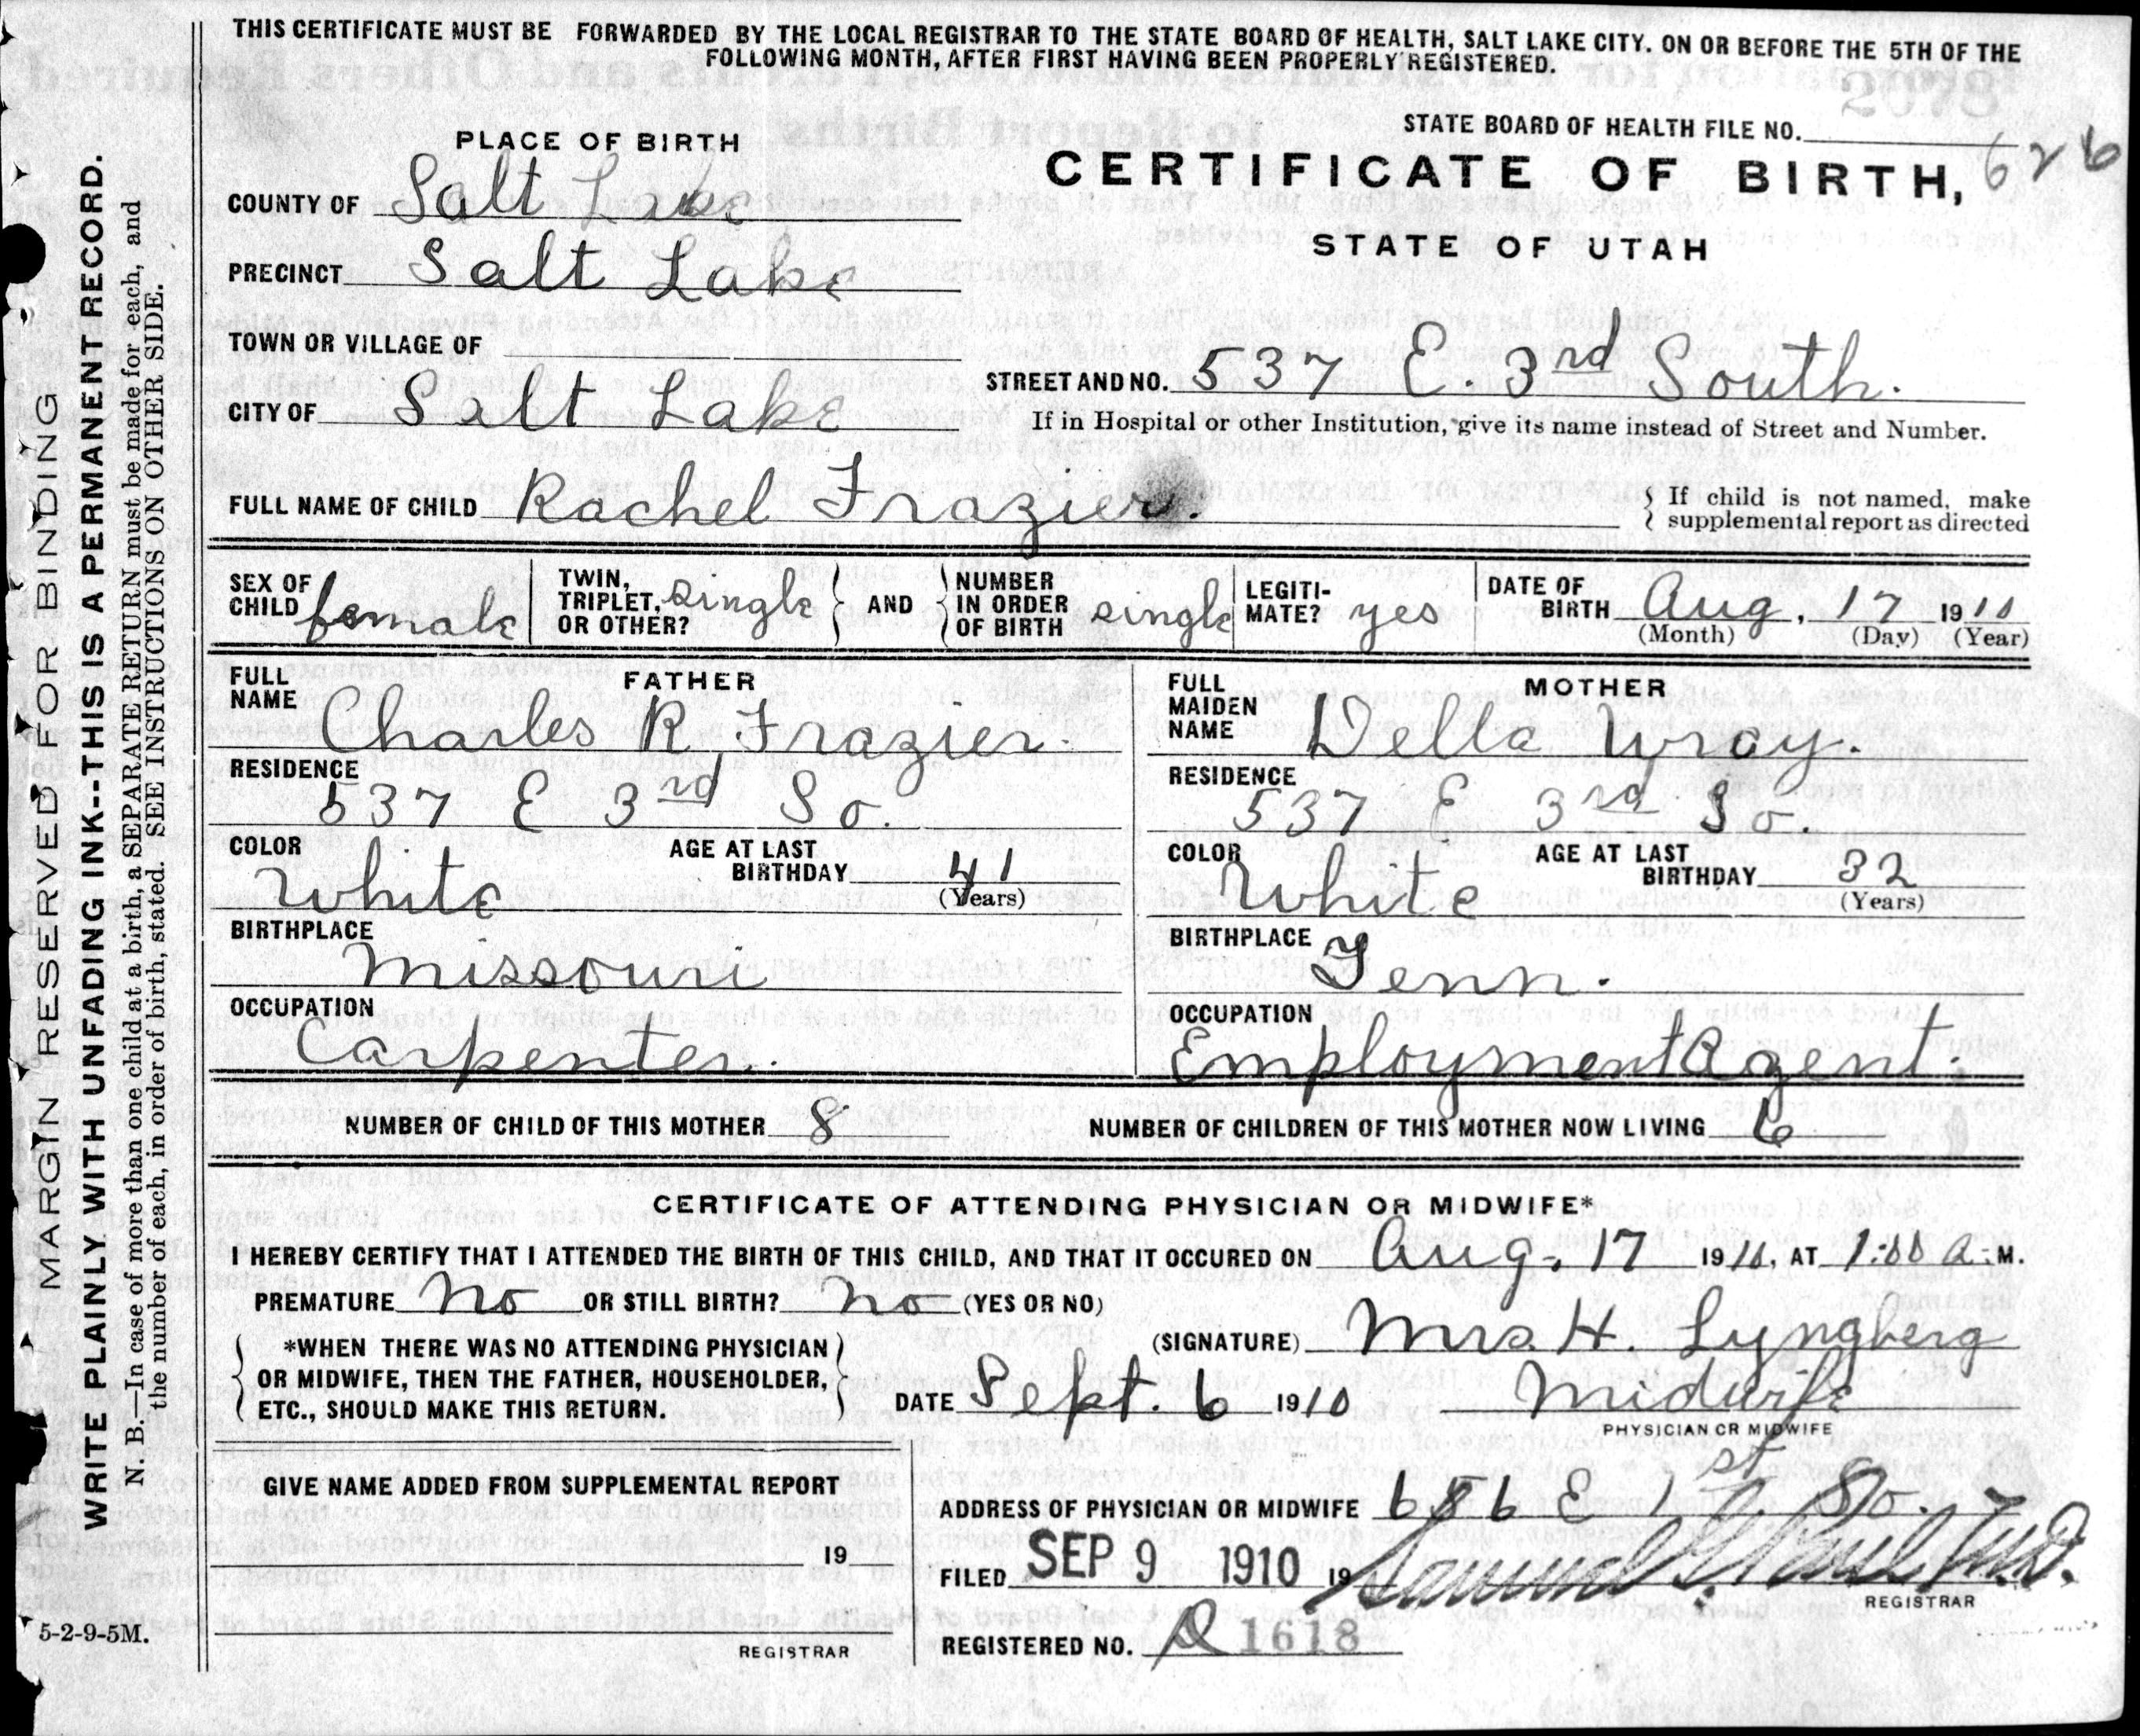 THIS CERTIFICATE MUST BE FORWARDED BY THE LOCAL REGISTRAR TO THE STATE BOARD OF HEALTH, SALT LAKE CITY. ON OR BEFORE THE 5TH OF THE
FOLLOWING MONTH, AFTER FIRST HAVING BEEN PROPERLY REGISTERED.
MARGIN RESERVED FOR BINDING
WRITE PLAINLY WITH UNFADING INK--THIS IS A PERMANENT RECORD.
N. B.—In case of more than one child at a birth, a SEPARATE RETURN must be made for each, and
the number of each, in order of birth, stated. SEE INSTRUCTIONS ON OTHER SIDE.
5-2-9-5M.
STATE BOARD OF HEALTH FILE NO.
626
CERTIFICATE OF BIRTH,
STATE OF UTAH
PLACE OF BIRTH
COUNTY OF Salt Lake
PRECINCT Salt Lake
TOWN OR VILLAGE OF
CITY OF Salt Lake
STREET AND NO. 537 E. 3rd South.
If in Hospital or other Institution, give its name instead of Street and Number.
FULL NAME OF CHILD Rachel Frazier.
If child is not named, make
supplemental report as directed
SEX OF CHILD female
TWIN, TRIPLET, OR OTHER? single
AND NUMBER IN ORDER OF BIRTH single
LEGITI-MATE? yes
DATE OF BIRTH Aug, 17 1910
(Month) (Day) (Year)
FATHER
FULL NAME Charles R. Frazier.
RESIDENCE
537 E 3rd So.
COLOR White
AGE AT LAST BIRTHDAY 41
(Years)
BIRTHPLACE
Missouri
OCCUPATION
Carpenter.
MOTHER
FULL MAIDEN NAME Della Wray.
RESIDENCE
537 E 3rd So.
COLOR White
AGE AT LAST BIRTHDAY 32
(Years)
BIRTHPLACE Tenn.
OCCUPATION
Employment Agent.
NUMBER OF CHILD OF THIS MOTHER 8
NUMBER OF CHILDREN OF THIS MOTHER NOW LIVING 6
CERTIFICATE OF ATTENDING PHYSICIAN OR MIDWIFE*
I HEREBY CERTIFY THAT I ATTENDED THE BIRTH OF THIS CHILD, AND THAT IT OCCURED ON Aug. 17 1910, AT 1:00 A. M.
PREMATURE No OR STILL BIRTH? No (YES OR NO)
*WHEN THERE WAS NO ATTENDING PHYSICIAN
OR MIDWIFE, THEN THE FATHER, HOUSEHOLDER,
ETC., SHOULD MAKE THIS RETURN.
(SIGNATURE) Mrs. H. Lyngberg
DATE Sept. 6 1910 Midwife
PHYSICIAN OR MIDWIFE
GIVE NAME ADDED FROM SUPPLEMENTAL REPORT
19
REGISTRAR
ADDRESS OF PHYSICIAN OR MIDWIFE 656 E 1st So.
FILED SEP 9 1910 19 Samuel G. Paul M.D.
REGISTRAR
REGISTERED NO. 1618